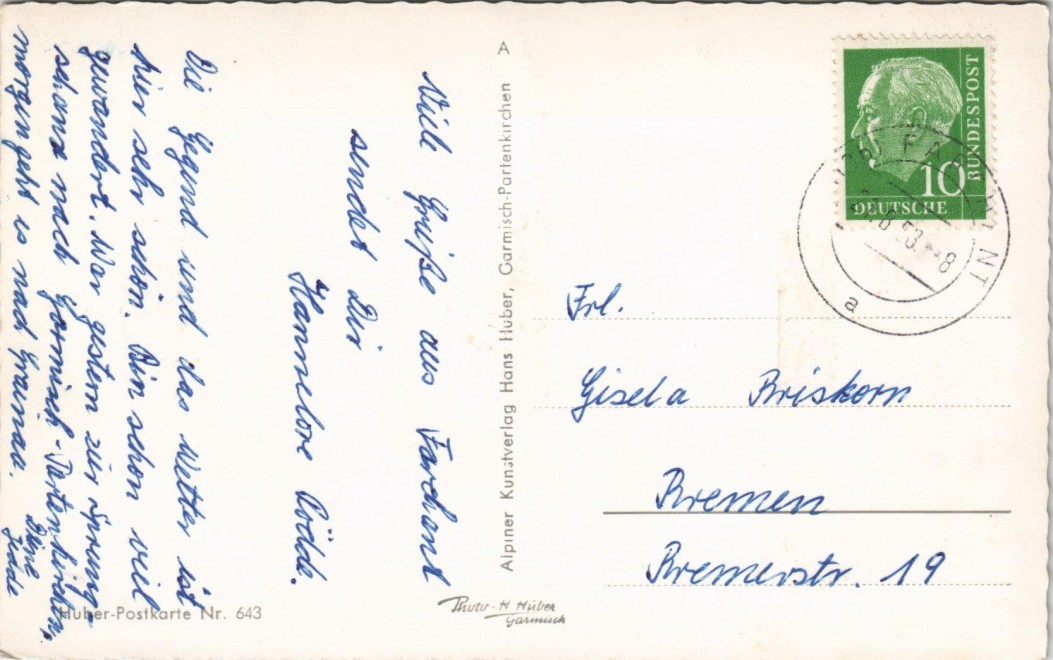 Viele Grüße aus Farchant
sendet Dir
Hannelore
Die Gegend und das Wetter ist
hier sehr schön. Bin schon viel
gewandert. War gestern zur Sprung-
schanz nach Garmisch-Partenkirchen,
morgen geht es nach Grainau.
A
Alpiner Kunstverlag Hans Huber, Garmisch-Partenkirchen
Huber-Postkarte Nr. 643
Photo-H Huber
Garmisch
BUNDESPOST
10
DEUTSCHE
a
Frl.
Gisela Briskorn
Bremen
Bremerstr. 19